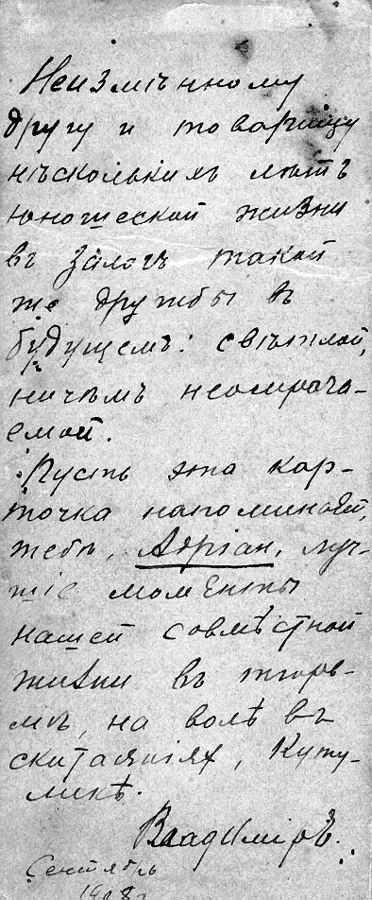 Неизмѣнному
другу и товарищу
нѣсколькихъ лѣтъ
юношеской жизни
въ залогъ такой
же дружбы въ
будущемъ: свѣтлой,
ничѣмъ неомрача-
емой.
Пусть эта кар-
точка напоминает,
тебѣ, Адріан, луч-
шіе моменты
нашей совмѣстной
жизни въ тюрь-
мѣ, на волѣ въ
скитаніях, Куту-
ликѣ.
Владиміръ.
Сентябрь
1908 г.